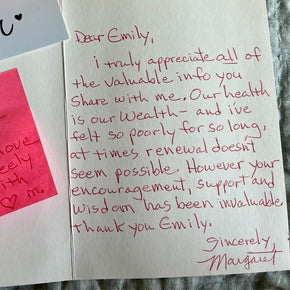 Dear Emily,
i truly appreciate all of
the valuable info you
share with me. Our health
is our wealth- and i've
felt so poorly for so long,
at times renewal doesn't
seem possible. However your
encouragement, support and
wisdom has been invaluable
thank you Emily.
Sincerely,
Margaret
m.